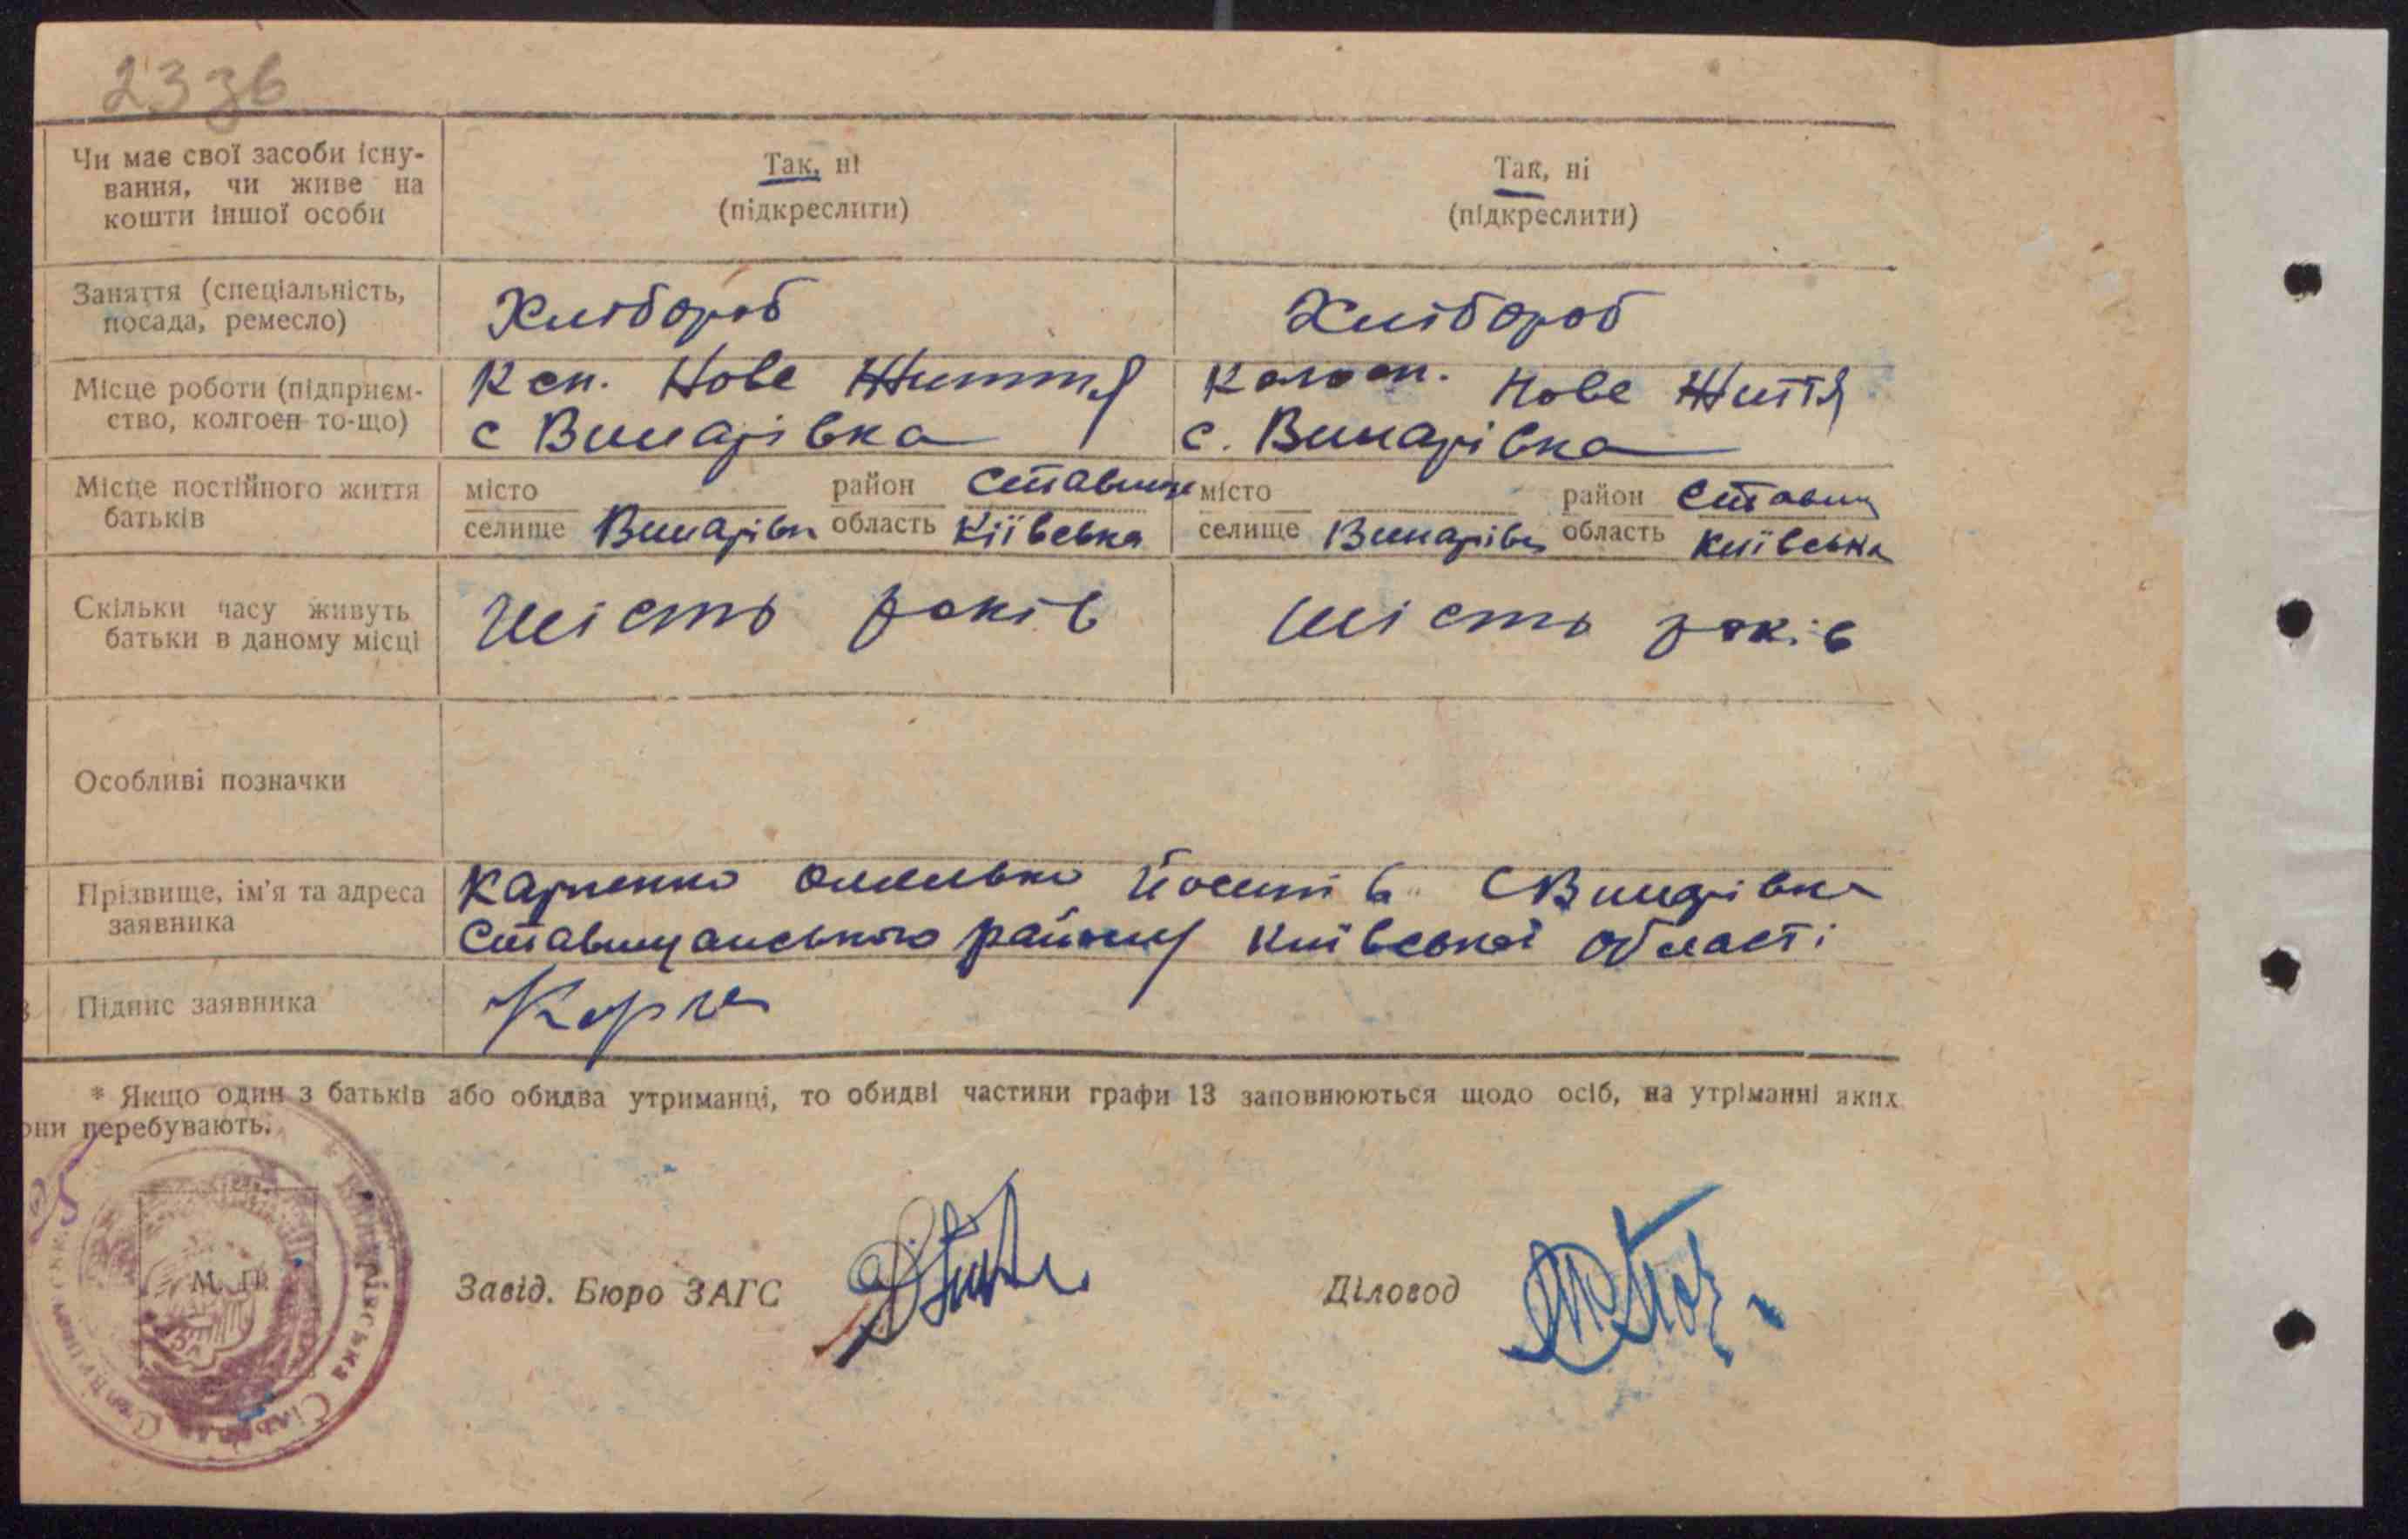 23зв
Чи має свої засоби існу-
вання, чи живе на
кошти іншої особи
Так, ні
(підкреслити)
Так, ні
(підкреслити)
Заняття (спеціальність,
посада, ремесло)
Хлібороб
Хлібороб
Місце роботи (підприєм-
ство, колгосп то-що)
Ксп. Нове Життя
с Винарівка
Колгосп. Нове Життя
с. Винарівка
Місце постійного життя
батьків
місто район Ставище
селище Винарівк область Київська
місто район Ставищ
селище Винарівк область Київська
Скільки часу живуть
батьки в даному місці
шість років
шість років
Особливі позначки
Прізвище, ім'я та адреса
заявника
Карпенко Омелько Йосипів с Винарівка
Ставищанського району Київської області
Підпис заявника
Карпе
* Якщо один з батьків або обидва утриманці, то обидві частини графи 13 заповнюються щодо осіб, на утріманні яких
они перебувають.
М. П.
Винарівська Сільська
Завід. Бюро ЗАГС
Діловод